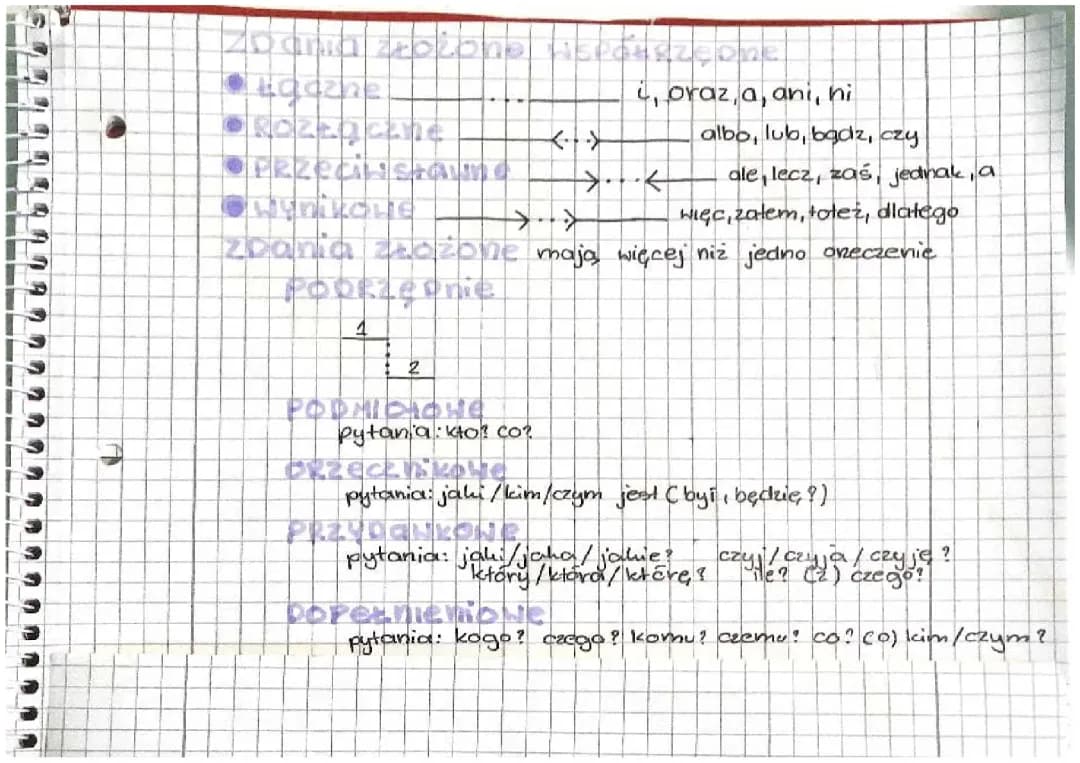 Zdania złożone współrzędne
• łączne ___...___ i, oraz, a, ani, ni
• Rozłączne ___<...>___ albo, lub, bądź, czy
• Przeciwstawne ___>...<___ ale, lecz, zaś, jednak, a
• wynikowe ___>...>___ więc, zatem, toteż, dlatego
Zdania złożone mają więcej niż jedno orzeczenie
podrzędnie
1
2
PODMIOTOWE
pytania: kto? co?
ORZECZNIKOWE
pytania: jaki/kim/czym jest (był, będzie?)
PRZYDAWKOWE
pytania: jaki/jaka/jakie? czyj/czyja/czyje?
który/która/które? ile? (z) czego?
DOPEŁNIENIOWE
pytania: kogo? czego? komu? czemu? co? (o) kim/czym?